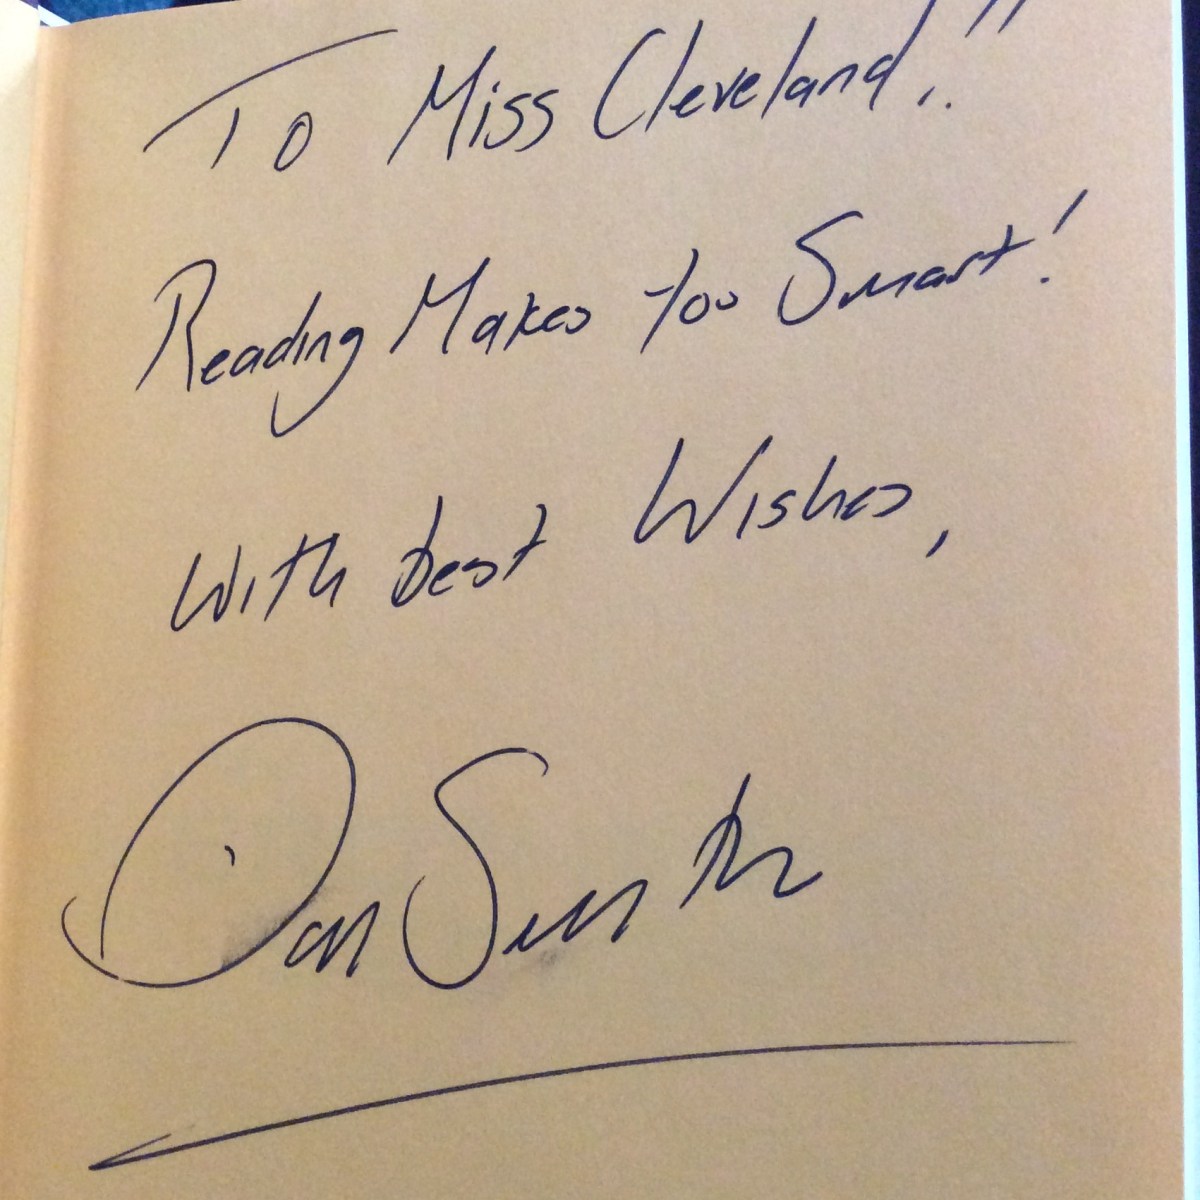 To Miss Cleveland!!
Reading Makes You Smart!
With best Wishes,
Dan Smith